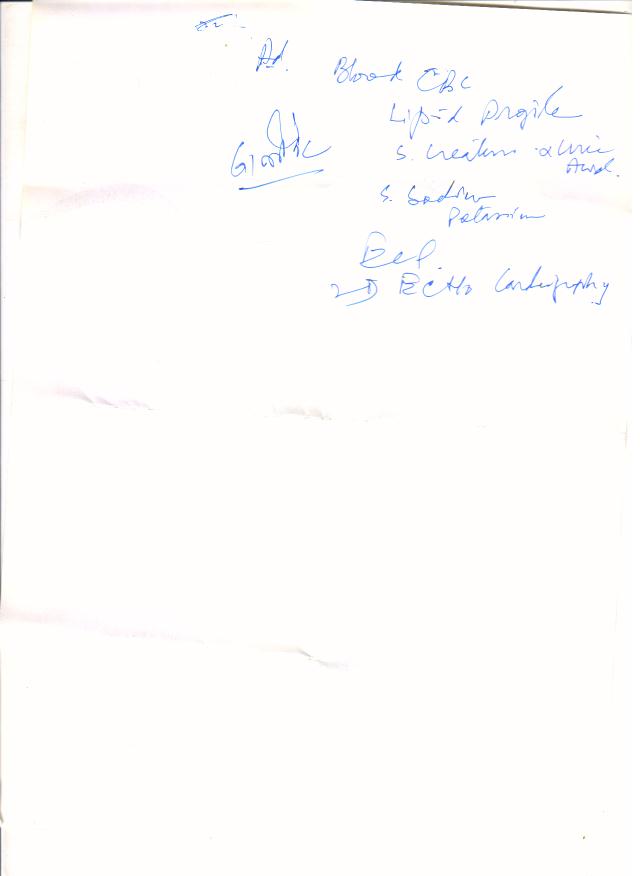 Ad. Blood CBC
Lipid Profile
S. Creatinine & Uric
Acid.
S. Sodium
Potassium
ECG.
2D ECHO Cardiography